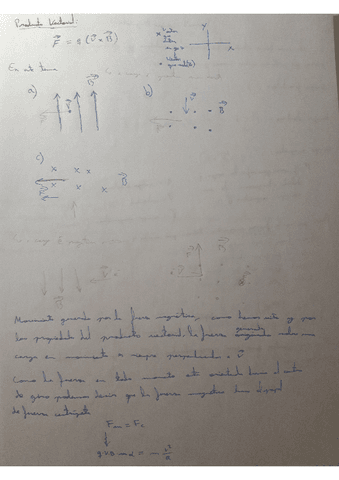 Producto Vectorial:
F = q (v × B)
x
y
x
En este tema
a)
B
v
b)
v
B
c)
x x x
x x x
B
B
v
v
B
Movimiento generado por la fuerza magnética, como hemos visto y por
las propiedades del producto vectorial, la fuerza generada sobre una
carga en movimiento es siempre perpendicular a v
Como la fuerza en todo momento está orientada hacia el centro
de giro podemos decir que la fuerza magnética hace el papel
de fuerza centrípeta
Fm = Fc
q v B sen α = m v²/R